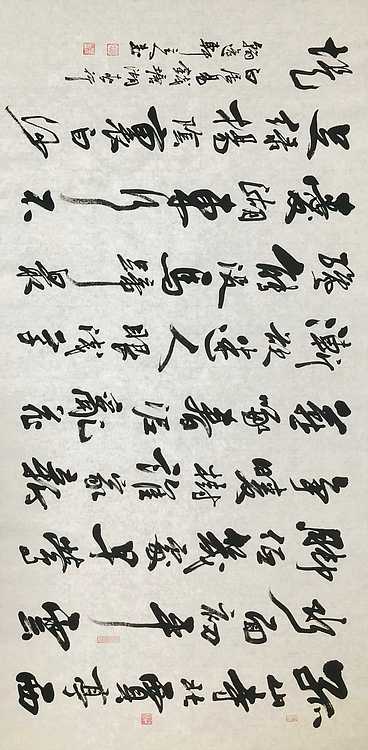 孤山寺北賈亭西
水面初平雲
腳低幾處早鶯
爭暖樹誰家新
燕啄春泥亂花
漸欲迷人眼淺草
才能沒馬蹄最
愛湖東行不
足綠楊陰裏白沙
堤
白居易錢塘湖春行
軒主人書